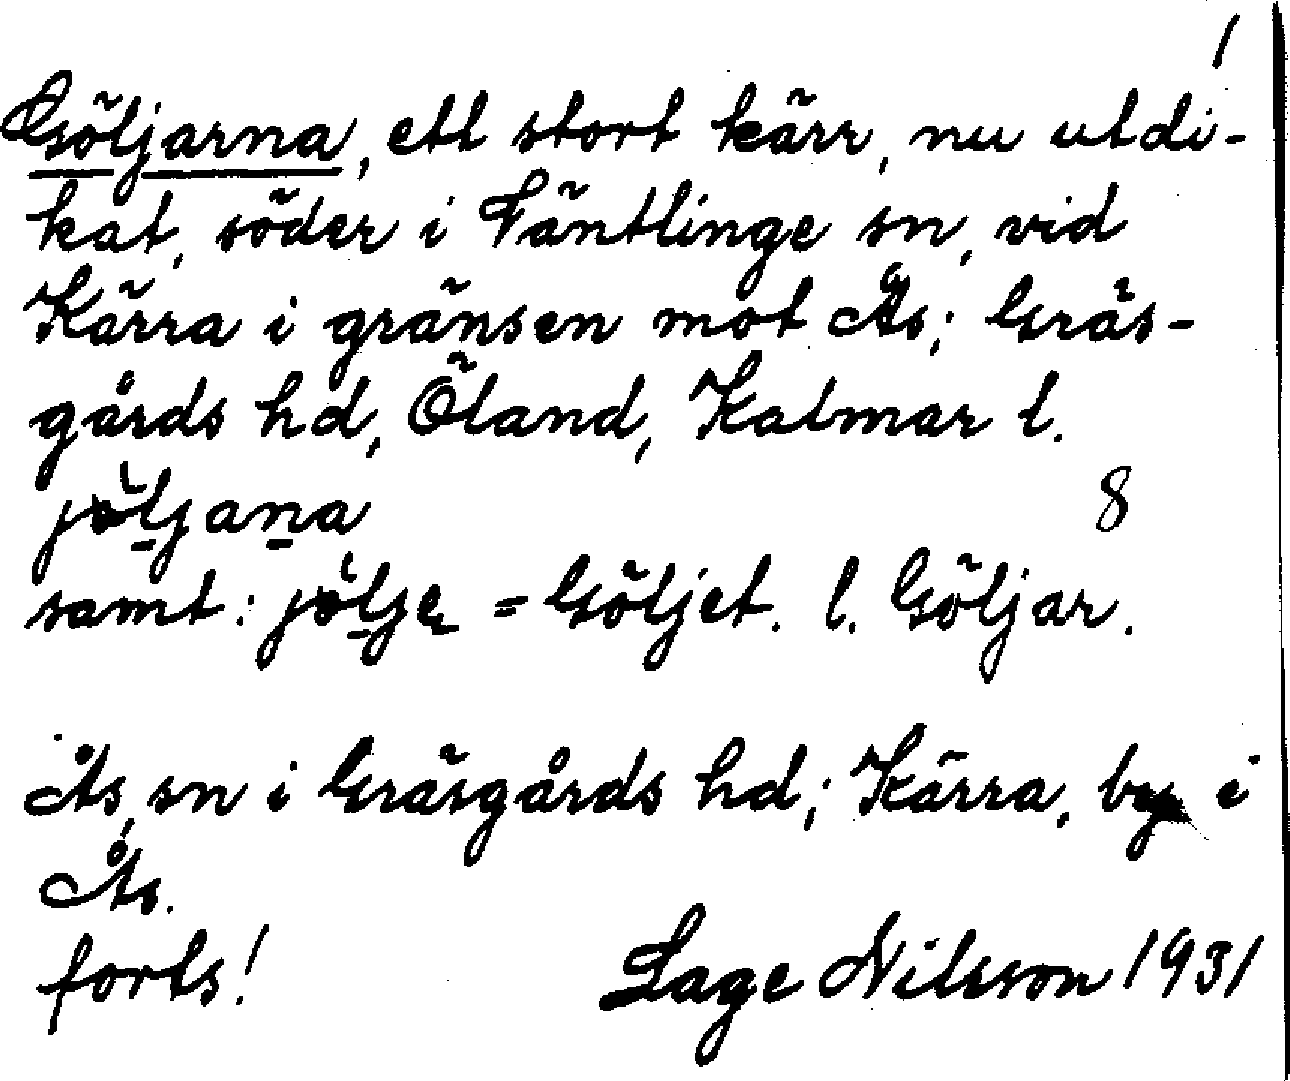 1
Göljarna, ett stort kärr, nu utdi-
kat, söder i Väntlinge sn, vid
Kärra i gränsen mot Ås; Gräs-
gårds hd, Öland, Kalmar l.
jöljana 8
samt: jölje = Göljet. l. Göljar.
Ås, sn i Gräsgårds hd; Kärra, by i
Ås.
forts! Lage Nilsson 1931